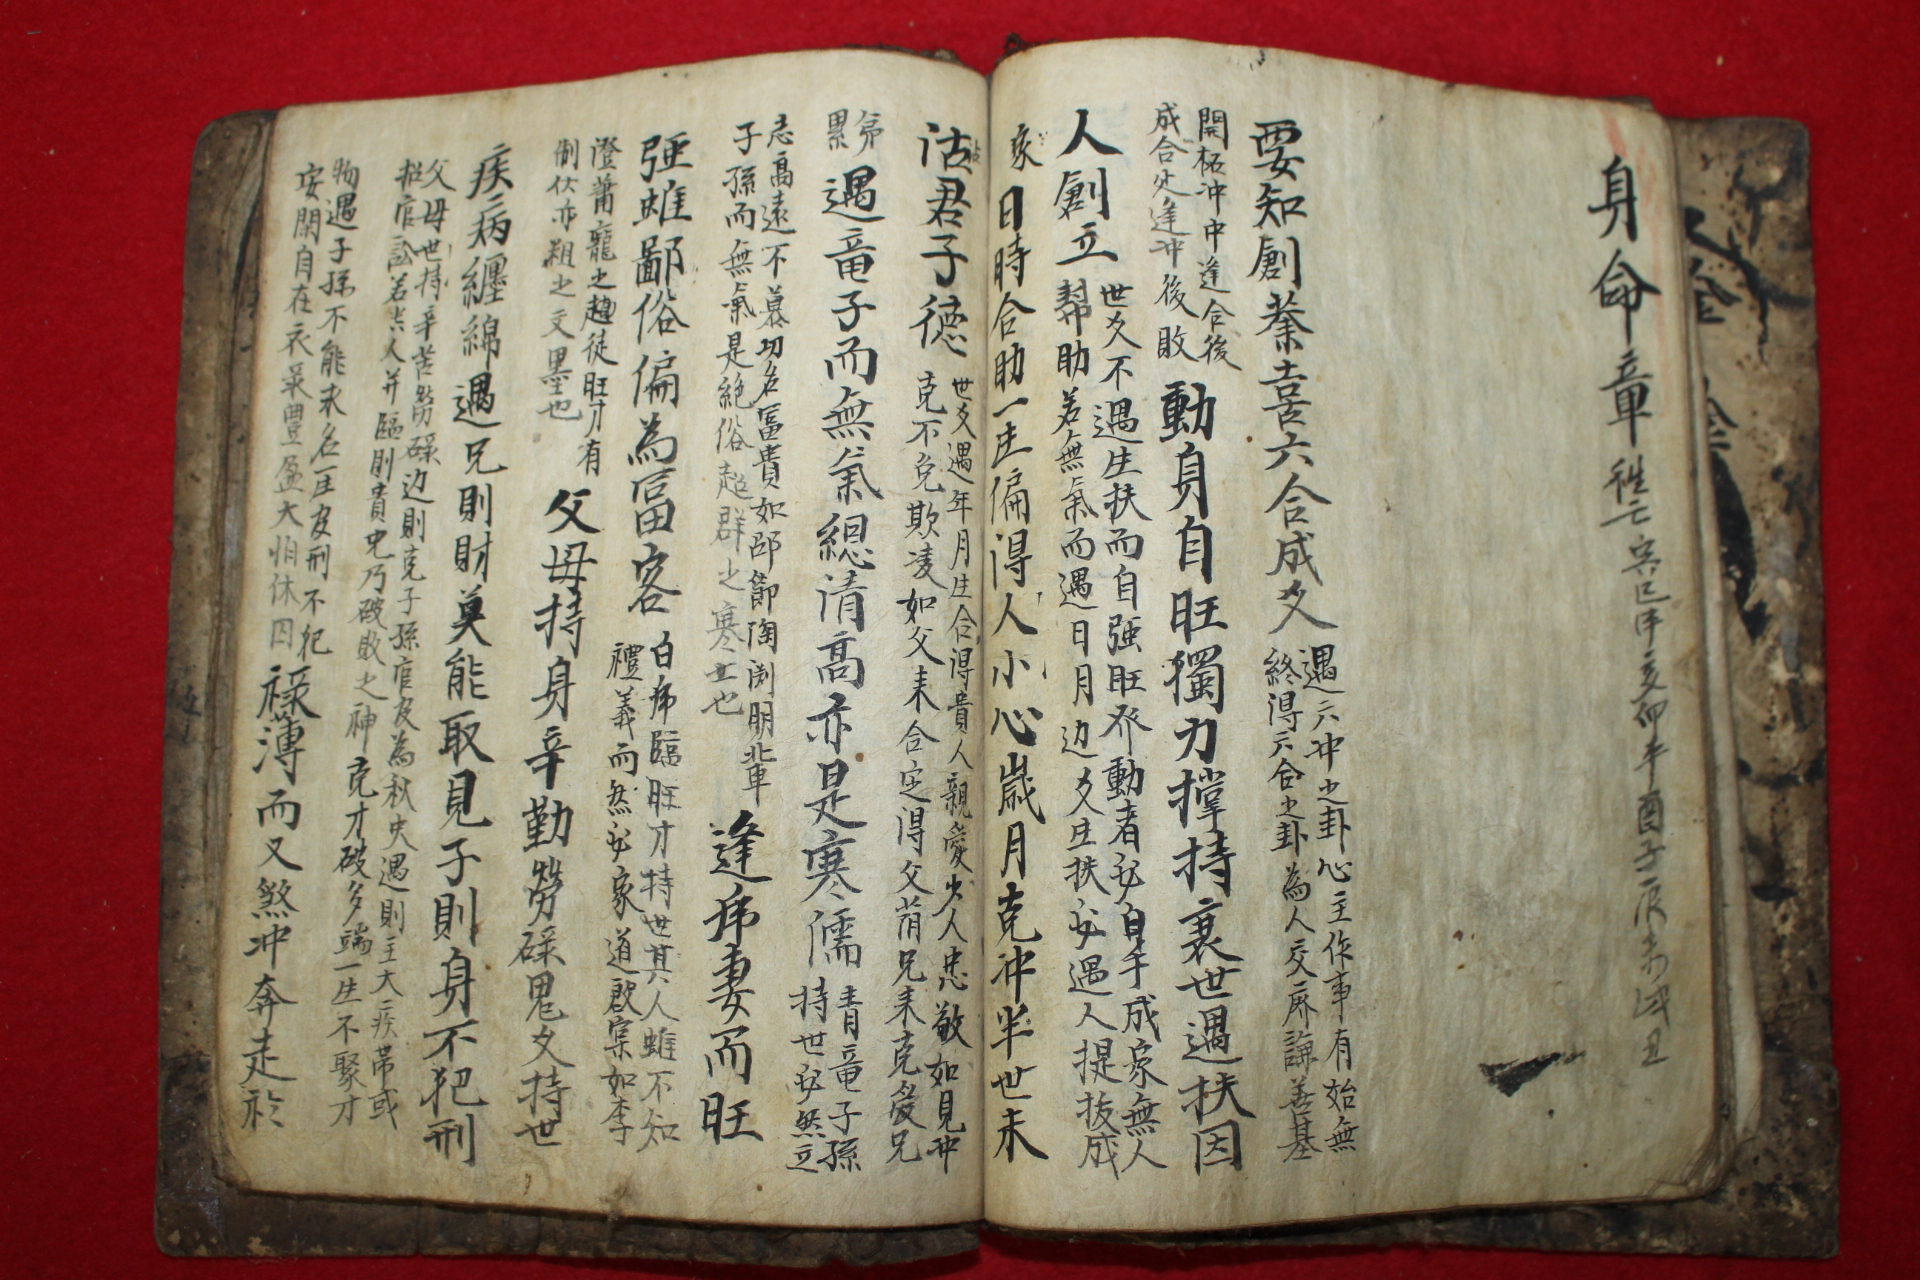 身命章
要知創業喜六合成爻
遇六冲之卦心主作事有始無
終得六合之卦為人交際謙善基
開柘冲中逢合後
成合处逢冲後敗
動身自旺獨力撑持衰世遇扶因
人創立
世爻不遇生扶而自强旺發動者必自手成家無人
幇助若無氣而遇日月边爻生扶必遇人提拔成
家
日時合助一生偏得人小心歲月克冲半世未
沾君子德
世爻遇年月生合得貴人親愛少人忠敬如見冲
克不免欺凌如父来合定得父萌兄来克爱兄
累
遇竜子而無氣總清高亦是寒儒
青竜子孫
持世必然立
志高遠不慕功名冨貴如邵節陶渕朋輩
子孫而無氣是絶俗超群之寒士也
逢虎妻而旺
强雖鄙俗偏為冨客
白虎臨旺才持世其人雖不知
禮義而然必家道啟寀如李
澄蕭寵之趙徒旺才有
制伏亦粗之文墨也
父母持身辛勤勞碌鬼爻持世
疾病纒綿遇兄則財莫能取見子則身不犯刑
父母世持辛苦勞碌边則克子孫官皮為秋尖遇則主大疾帶或
招官訟若吉人并臨則貴兄乃破敗之神克才破多端一生不聚才
物遇子孫不能求名一生皮刑不犯
安閑自在衣祿豊盈大怕休囚
祿薄而又煞冲奔走於